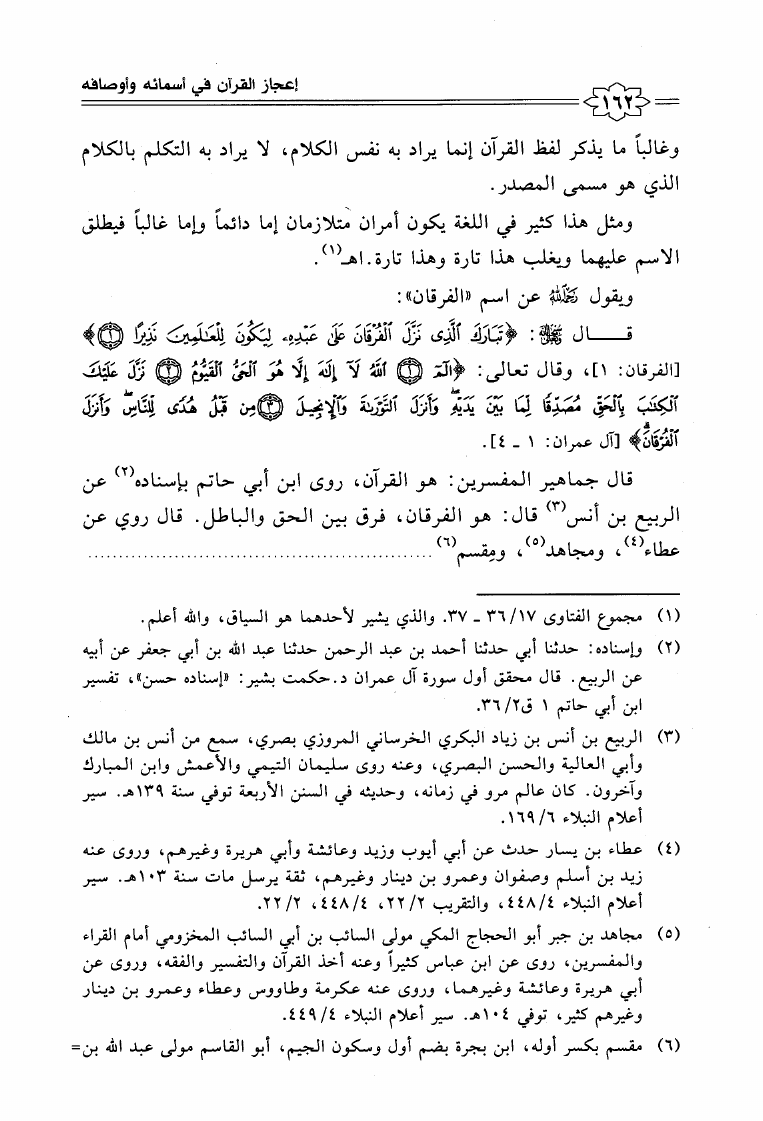 إعجاز القرآن في أسمائه وأوصافه
١٦٢
وغالباً ما يذكر لفظ القرآن إنما يراد به نفس الكلام، لا يراد به التكلم بالكلام
الذي هو مسمى المصدر.
ومثل هذا كثير في اللغة يكون أمران متلازمان إما دائماً وإما غالباً فيطلق
الاسم عليهما ويغلب هذا تارة وهذا تارة. اهـ(١).
ويقول رحمه الله عن اسم «الفرقان»:
قـــال ﷺ: ﴿تَبَارَكَ ٱلَّذِى نَزَّلَ ٱلْفُرْقَانَ عَلَىٰ عَبْدِهِۦ لِيَكُونَ لِلْعَـٰلَمِينَ نَذِيرًا ۝١﴾
[الفرقان: ١]، وقال تعالى: ﴿الٓمٓ ۝١ ٱللَّهُ لَآ إِلَـٰهَ إِلَّا هُوَ ٱلْحَىُّ ٱلْقَيُّومُ ۝٢ نَزَّلَ عَلَيْكَ
ٱلْكِتَـٰبَ بِٱلْحَقِّ مُصَدِّقًا لِّمَا بَيْنَ يَدَيْهِ وَأَنزَلَ ٱلتَّوْرَىٰةَ وَٱلْإِنجِيلَ ۝٣ مِن قَبْلُ هُدًى لِّلنَّاسِ وَأَنزَلَ
ٱلْفُرْقَانَ﴾ [آل عمران: ١ ـ ٤].
قال جماهير المفسرين: هو القرآن، روى ابن أبي حاتم بإسناده(٢) عن
الربيع بن أنس(٣) قال: هو الفرقان، فرق بين الحق والباطل. قال روي عن
عطاء(٤)، ومجاهد(٥)، ومِقسم(٦) ....................................................
(١) مجموع الفتاوى ٣٦/١٧ ـ ٣٧. والذي يشير لأحدهما هو السياق، والله أعلم.
(٢) وإسناده: حدثنا أبي حدثنا أحمد بن عبد الرحمن حدثنا عبد الله بن أبي جعفر عن أبيه
عن الربيع. قال محقق أول سورة آل عمران د.حكمت بشير: «إسناده حسن»، تفسير
ابن أبي حاتم ١ ق٣٦/٢.
(٣) الربيع بن أنس بن زياد البكري الخرساني المروزي بصري، سمع من أنس بن مالك
وأبي العالية والحسن البصري، وعنه روى سليمان التيمي والأعمش وابن المبارك
وآخرون. كان عالم مرو في زمانه، وحديثه في السنن الأربعة توفي سنة ١٣٩هـ. سير
أعلام النبلاء ١٦٩/٦.
(٤) عطاء بن يسار حدث عن أبي أيوب وزيد وعائشة وأبي هريرة وغيرهم، وروى عنه
زيد بن أسلم وصفوان وعمرو بن دينار وغيرهم، ثقة يرسل مات سنة ١٠٣هـ. سير
أعلام النبلاء ٤٤٨/٤، والتقريب ٢٢/٢، ٤٤٨/٤، ٢٢/٢.
(٥) مجاهد بن جبر أبو الحجاج المكي مولى السائب بن أبي السائب المخزومي أمام القراء
والمفسرين، روى عن ابن عباس كثيراً وعنه أخذ القرآن والتفسير والفقه، وروى عن
أبي هريرة وعائشة وغيرهما، وروى عنه عكرمة وطاووس وعطاء وعمرو بن دينار
وغيرهم كثير، توفي ١٠٤هـ. سير أعلام النبلاء ٤٤٩/٤.
(٦) مقسم بكسر أوله، ابن بجرة بضم أول وسكون الجيم، أبو القاسم مولى عبد الله بن=